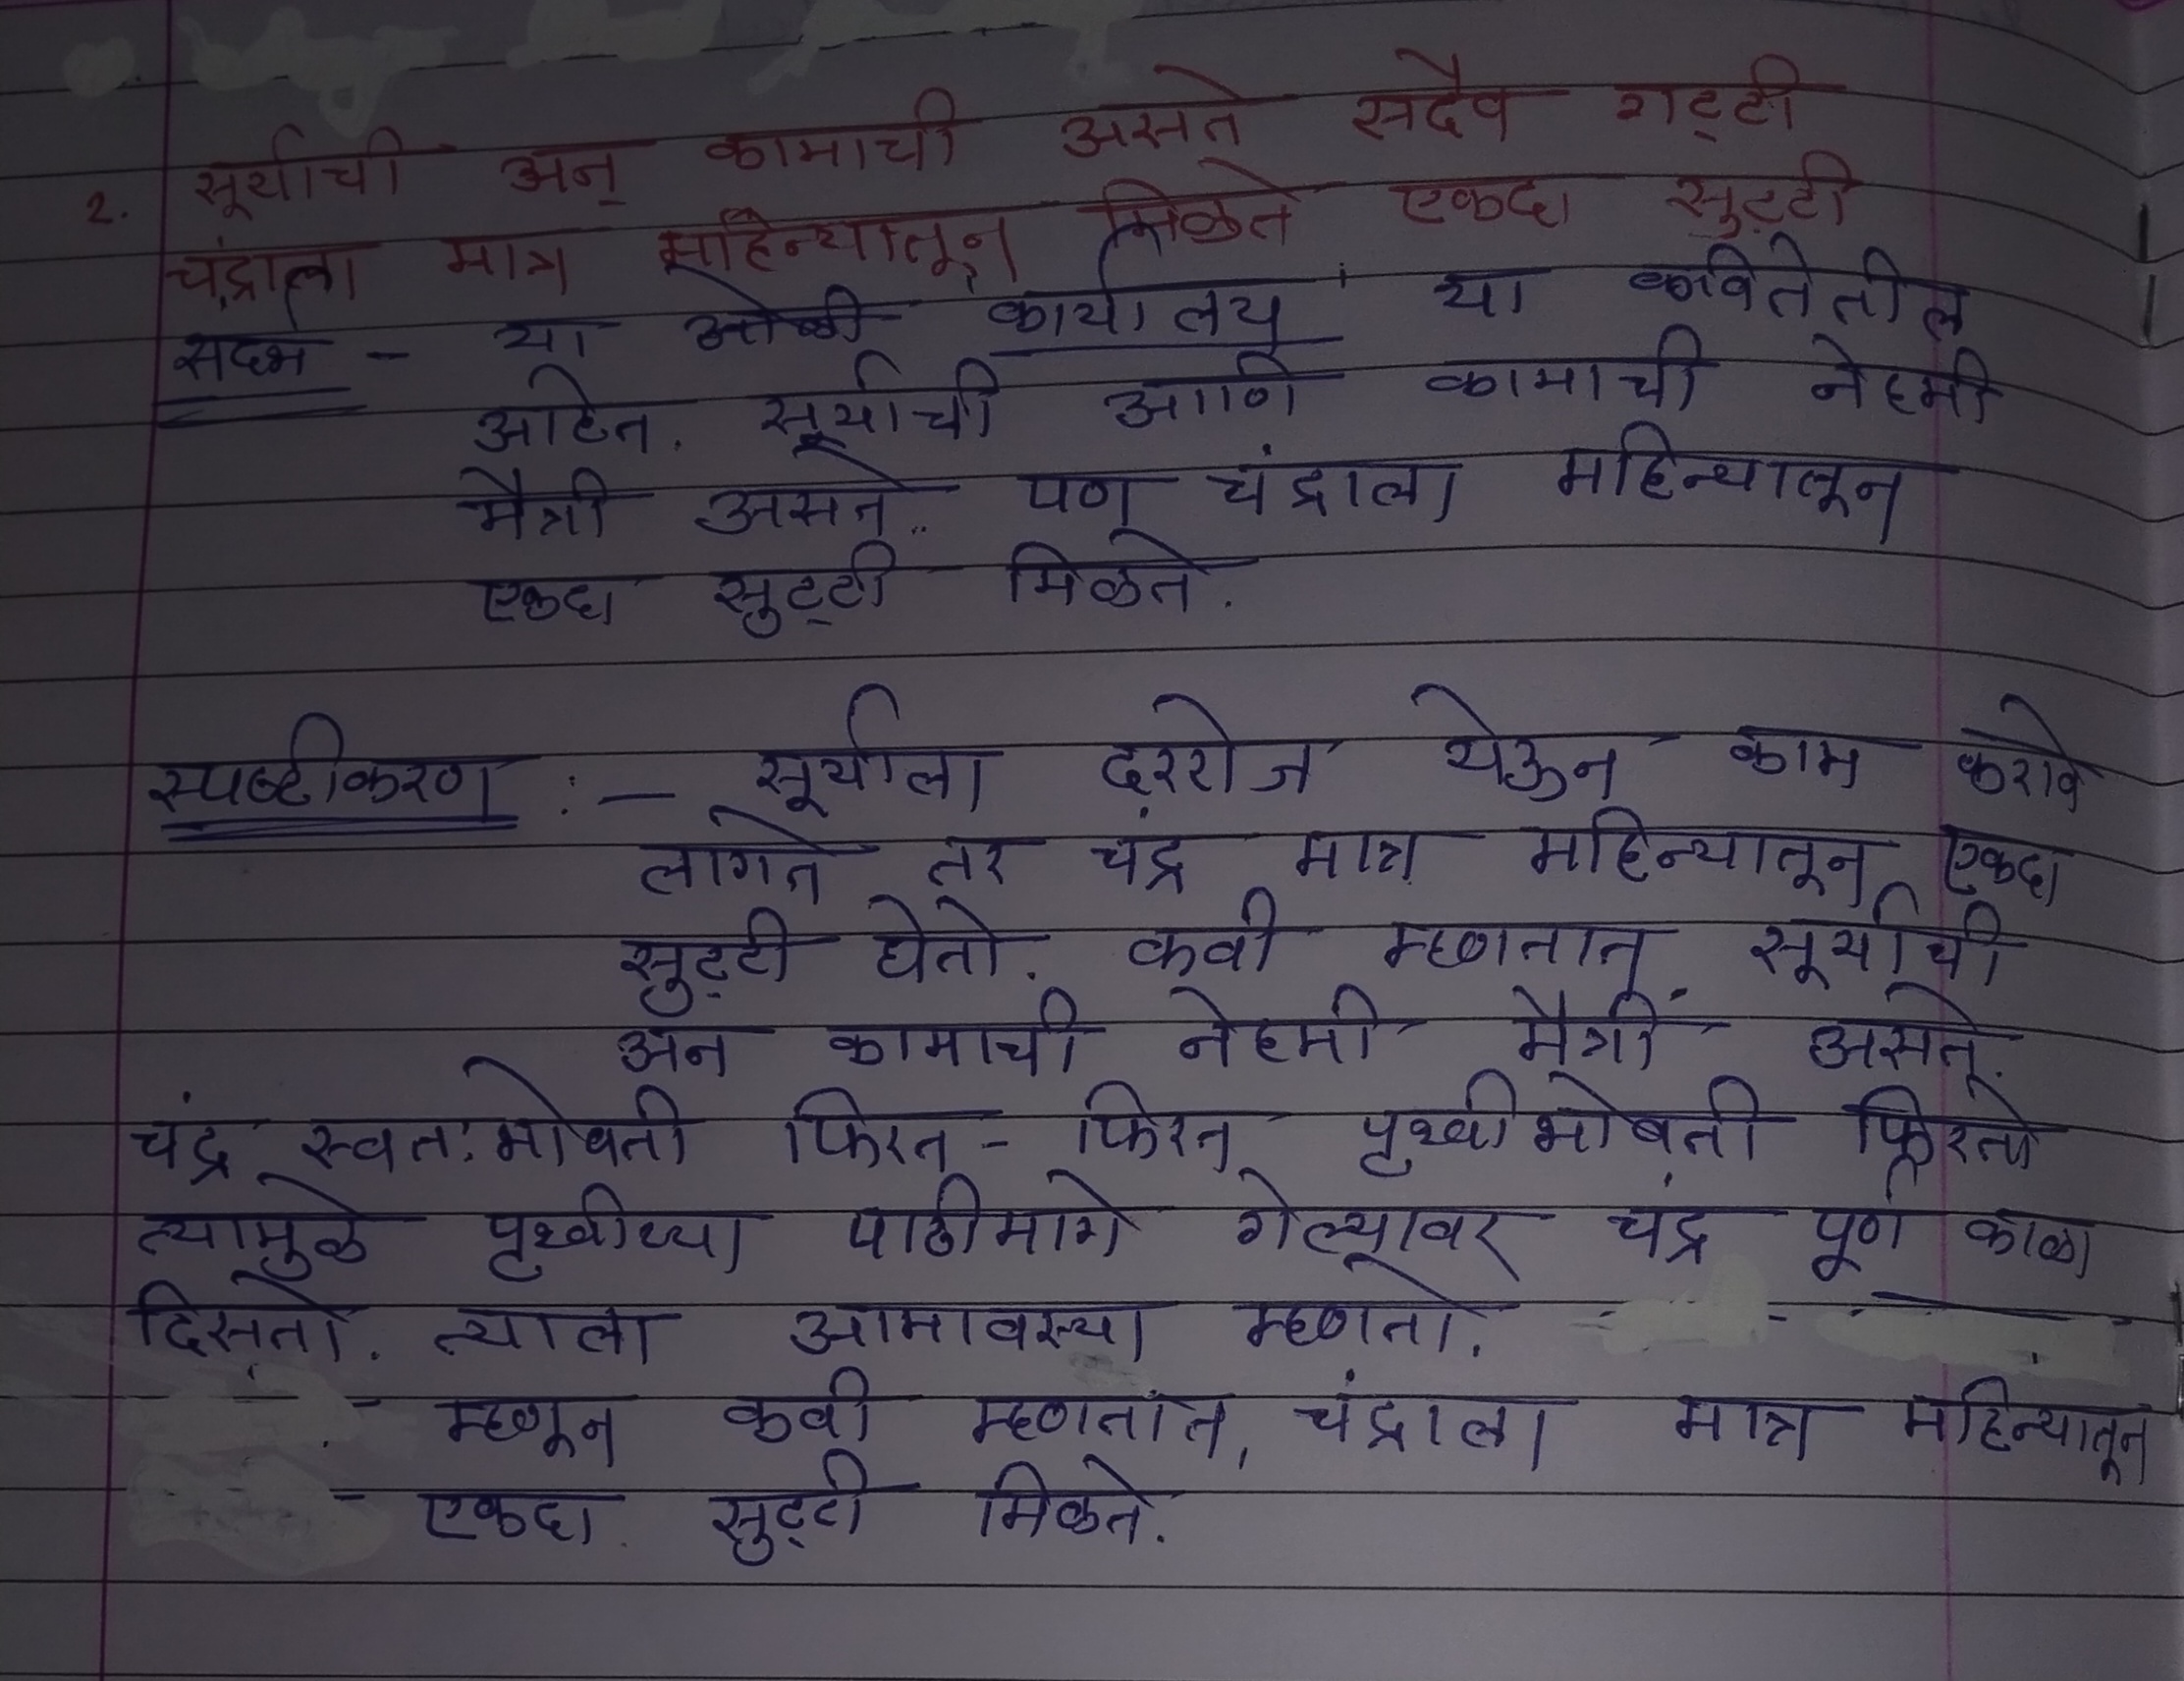 2. सूर्याची अन् कामाची असते सदैव गट्टी
चंद्राला मात्र महिन्यातून मिळते एकदा सुट्टी
संदर्भ - या ओळी कार्यालय या कवितेतील
आहेत. सूर्याची आणि कामाची नेहमी
मैत्री असते. पण चंद्राला महिन्यातून
एकदा सुट्टी मिळते.
स्पष्टीकरण :- सूर्याला दररोज येऊन काम करावे
लागते तर चंद्र मात्र महिन्यातून एकदा
सुट्टी घेतो. कवी म्हणतात, सूर्याची
अन कामाची नेहमी मैत्री असते.
चंद्र स्वत:भोवती फिरत - फिरत पृथ्वीभोवती फिरतो
त्यामुळे पृथ्वीच्या पाठीमागे गेल्यावर चंद्र पूर्ण काळा
दिसतो. त्याला आमावस्या म्हणतो.
म्हणून कवी म्हणतात, चंद्राला मात्र महिन्यातून
एकदा सुट्टी मिळते.